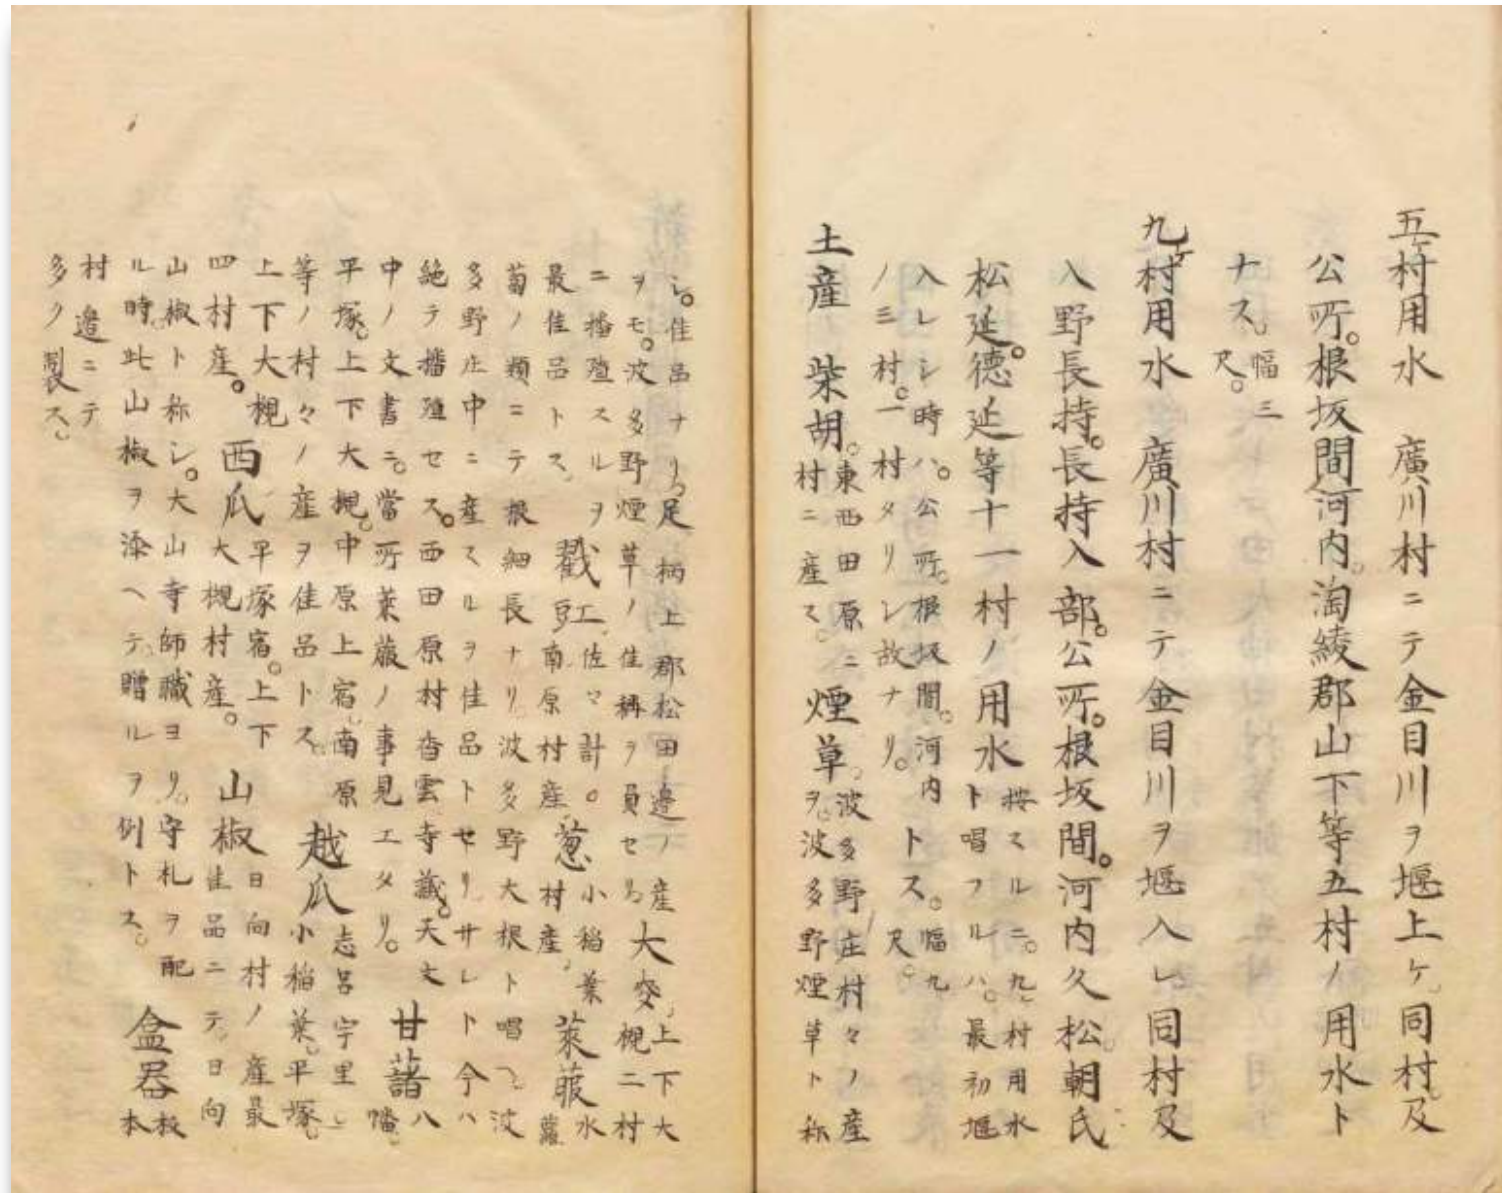 五ヶ村用水 廣川村ニテ金目川ヲ堰上ケ。同村及
公所。根坂間河内。淘綾郡山下等五村ノ用水ト
ナス。幅三尺。
九ヶ村用水 廣川村ニテ金目川ヲ堰入レ同村及
入野長持。長持入部。公所。根坂間。河内久松。朝氏
松延。德延等十一村ノ用水トス。幅九尺。
按スルニ。九ヶ村用水
ト唱フルハ。最初堰
入レシ時ハ。公所。根坂間。河内
ノ三村。一村タリシ故ナリ。
土産 柴胡。東西田原ニ村ニ産ス。煙草。波多野庄村々ノ産ヲ。波多野煙草ト称
シ。佳品ナリ。足柄上郡松田邊ノ産
ヲモ。波多野煙草ノ佳稱ヲ負セリ。大麥。上下大槻二村
ニ播殖スルヲ
最佳品トス。戳豆。佐々計。南原村産。葱。小稲葉村産。萊菔。水蘿
蔔ノ類ニテ根細長ナリ。波多野大根ト唱ヘ。波
多野庄中ニ産スルヲ佳品トセリ。サレト今ハ
絶テ播殖セス。西田原村香雲寺蔵。天文
中ノ文書ニ。當所菜菔ノ事見エタリ。甘藷 八幡。
平塚。上下大槻。中原上宿。南原
等ノ村々ノ産ヲ佳品トス。越瓜 志呂宇里。小稲葉。平塚。
上下大槻
四村産。西瓜 平塚宿。上下大槻村産。山椒 日向村ノ産最佳品ニテ。日向
山椒ト称シ。大山寺師職ヨリ。守札ヲ配
ル時。此山椒ヲ添ヘテ。贈ルヲ例トス。盒器 坂本
村邊ニテ
多ク製ス。